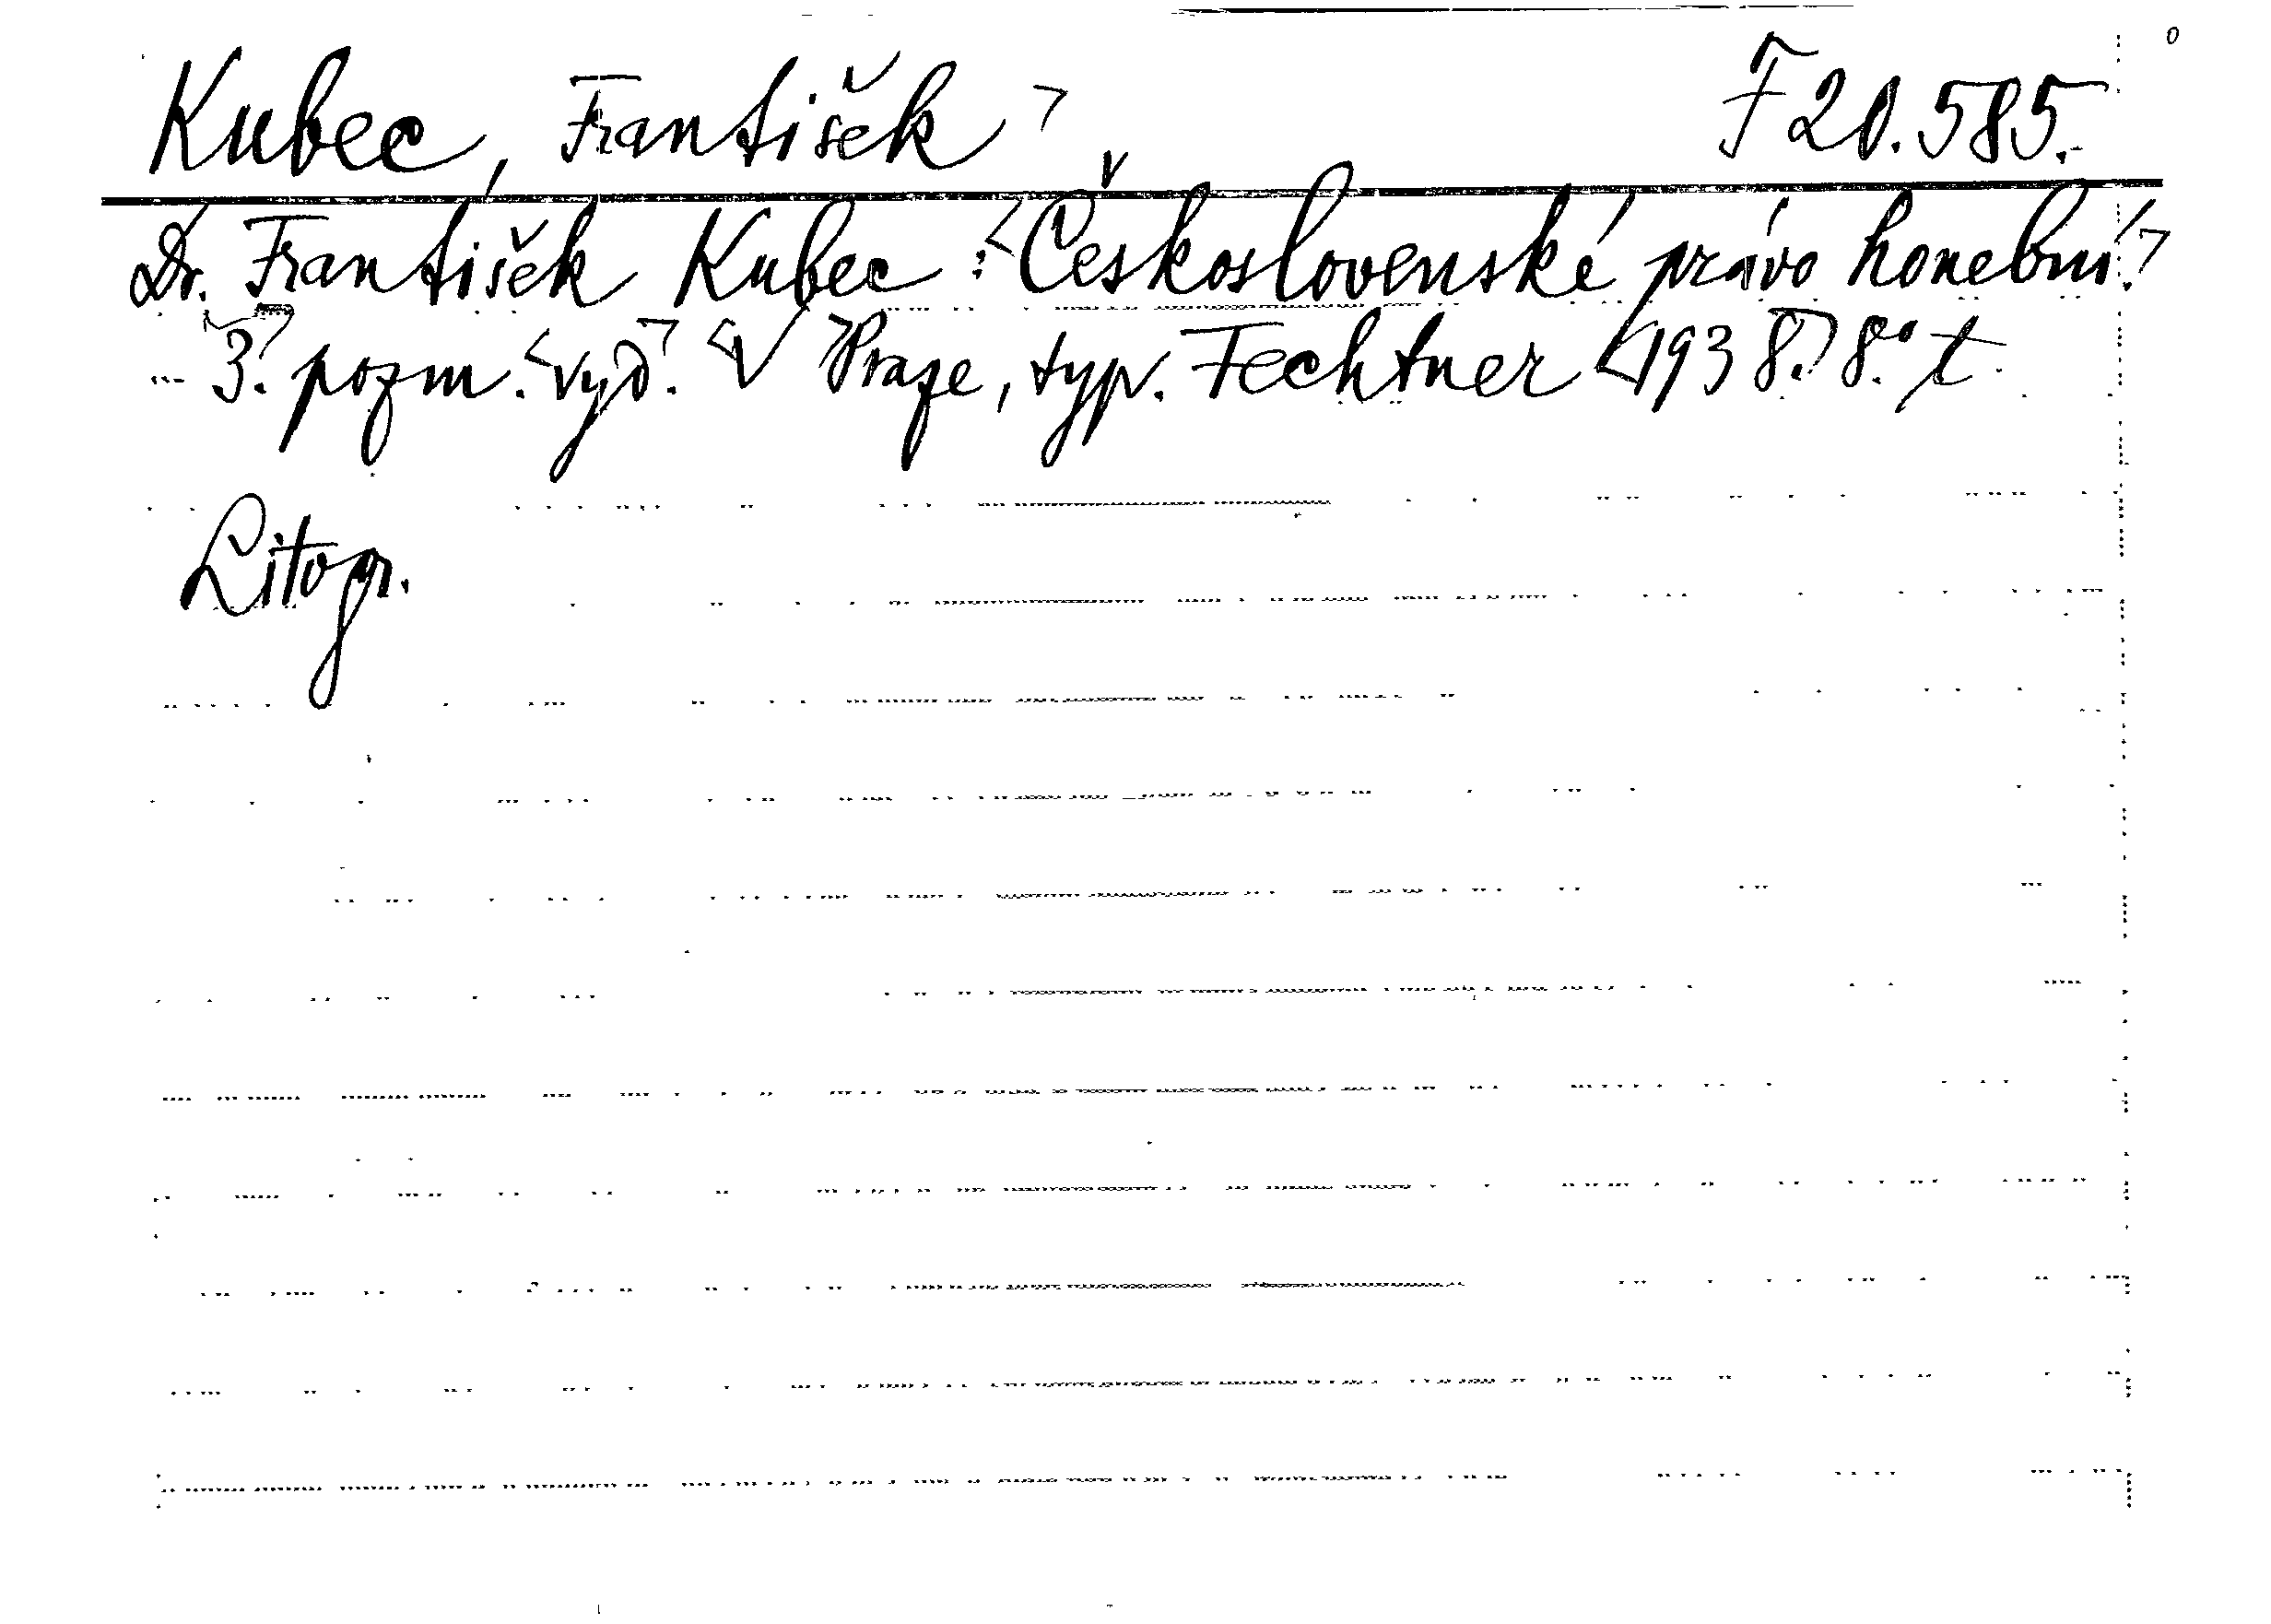 Kubec, František F 20.585.
Dr. František Kubec: Československé právo honební.
3. pozm. vyd. V Praze, typ. Fechtner 1938. 8° t.
Litogr.